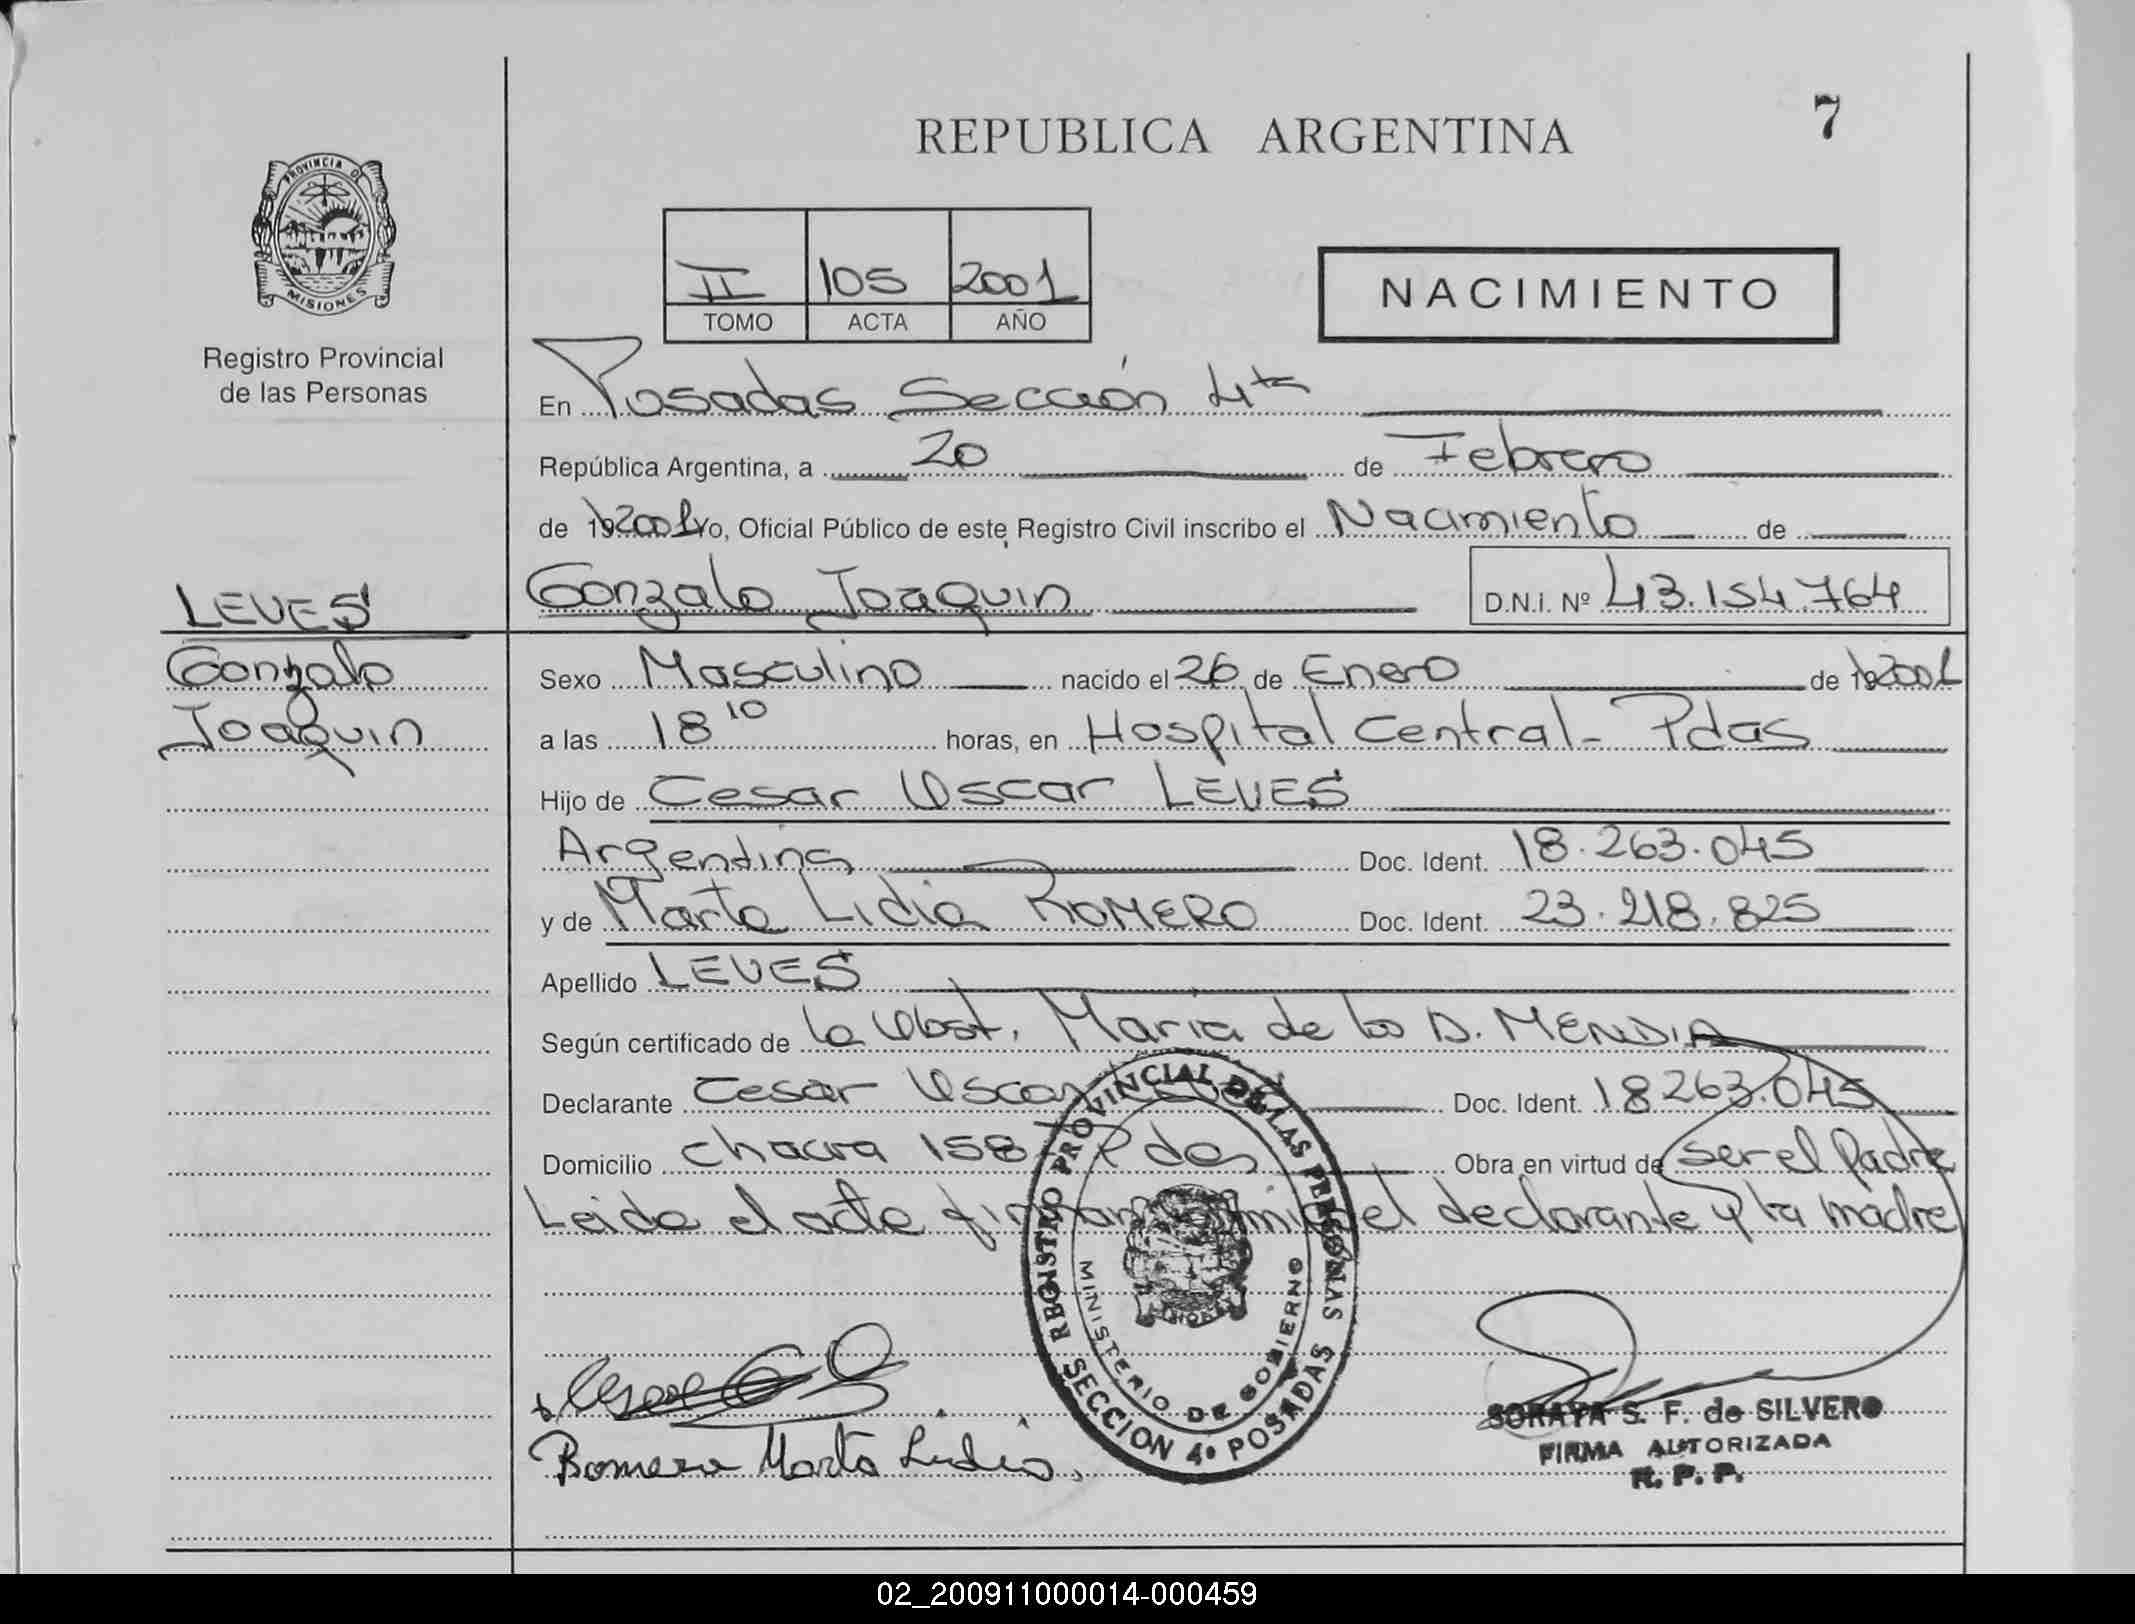 REPUBLICA ARGENTINA
7
PROVINCIA DE
MISIONES
Registro Provincial
de las Personas
II 105 2001
TOMO ACTA AÑO
NACIMIENTO
En Posadas Sección 4ta
República Argentina, a 20 de Febrero
de 19 2001 Yo, Oficial Público de este Registro Civil inscribo el Nacimiento de
LEVES
Gonzalo Joaquin D.N.i. Nº 43.154.764
Gonzalo
Joaquin
Sexo Masculino nacido el 26 de Enero de 19 2001
a las 18 10 horas, en Hospital Central - Pdas
Hijo de Cesar Oscar LEVES
Argentina Doc. Ident. 18.263.045
y de Marta Lidia ROMERO Doc. Ident. 23.218.825
Apellido LEVES
Según certificado de la Obst. Maria de los D. MENDIA
Declarante Cesar Oscar Doc. Ident. 18263.045
Domicilio chacra 158 - Pdas Obra en virtud de ser el Padre
Leida el acta firman mi el declarante y la madre
REGISTRO PROVINCIAL DE LAS PERSONAS
MINISTERIO DE GOBIERNO
SECCION 4º POSADAS
Romero Marta Lidia.
SORAYA S. F. de SILVERO
FIRMA AUTORIZADA
R. P. P.
02_200911000014-000459